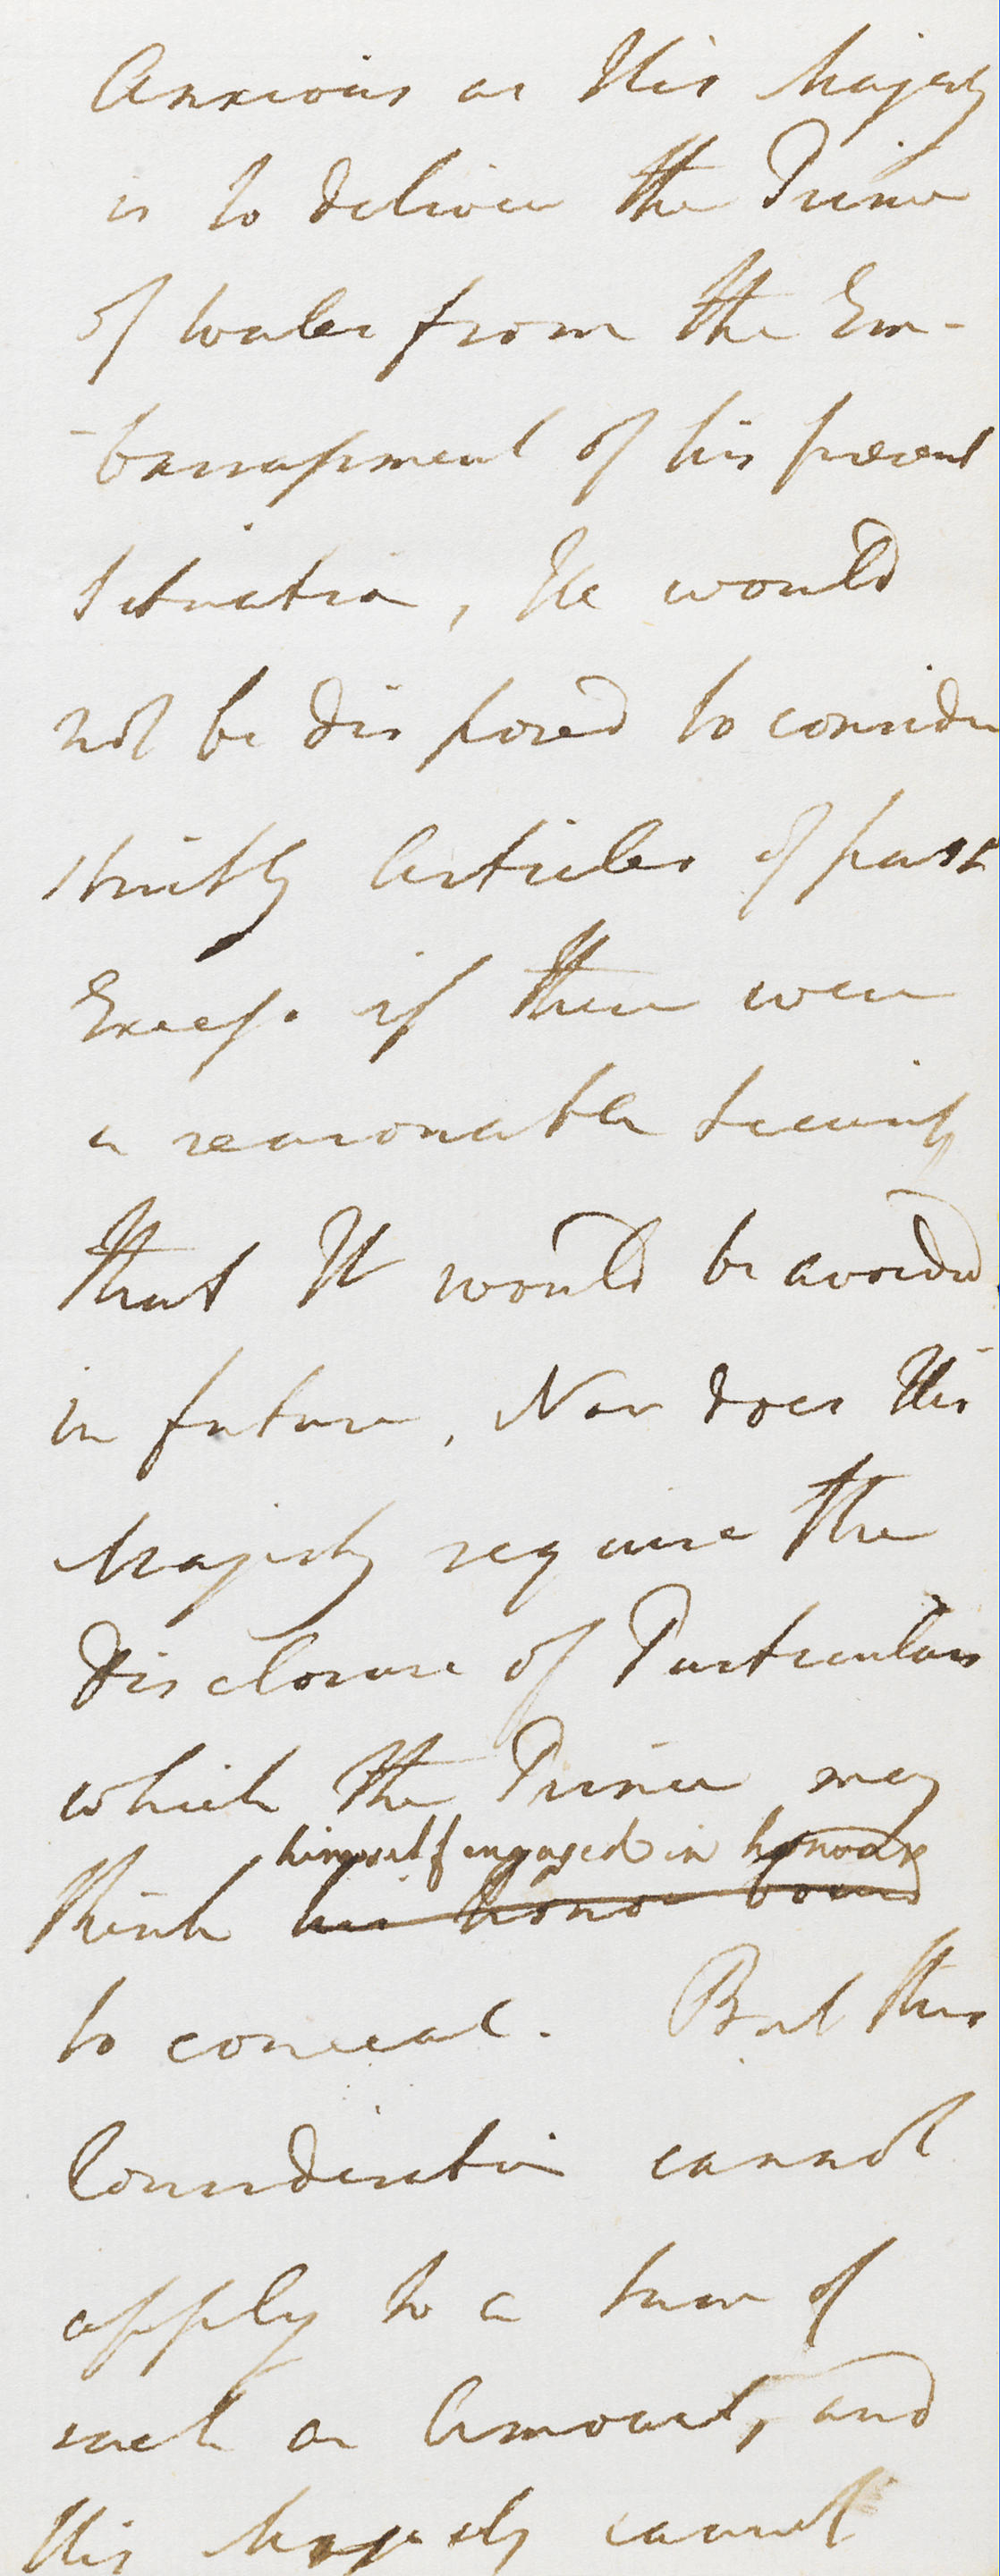 Anxious as His Majesty
is to deliver the Prince
of Wales from the Em-
-barrassment of his present
Situation, He would
not be disposed to consider
strictly Articles of past
Excess. if there were
a reasonable Security
that It would be avoided
in future, Nor does His
Majesty require the
Disclosure of Particulars
which the Prince may
himself engaged in honour
think his honor bound
to conceal. But this
Consideration cannot
apply to a Sum of
such an Amount, and
His Majesty cannot